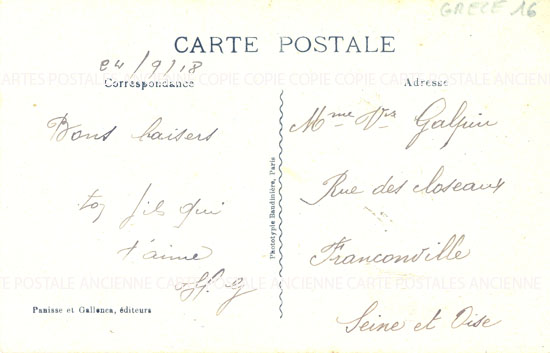 GRECE 16
CARTE POSTALE
24/9/18
COPIE CARTES POSTALES ANCIENNE COPIE COPIE COPIE COPIE CARTES POSTALES ANCIENNE
Correspondance
Adresse
Bons baisers
ton fils qui
t'aime
Mme Vve Galpin
Rue des closeaux
Franconville
Seine et Oise
Phototypie Baudinière, Paris
CARTE POSTALE ANCIENNE
Panisse et Gallenca, éditeurs